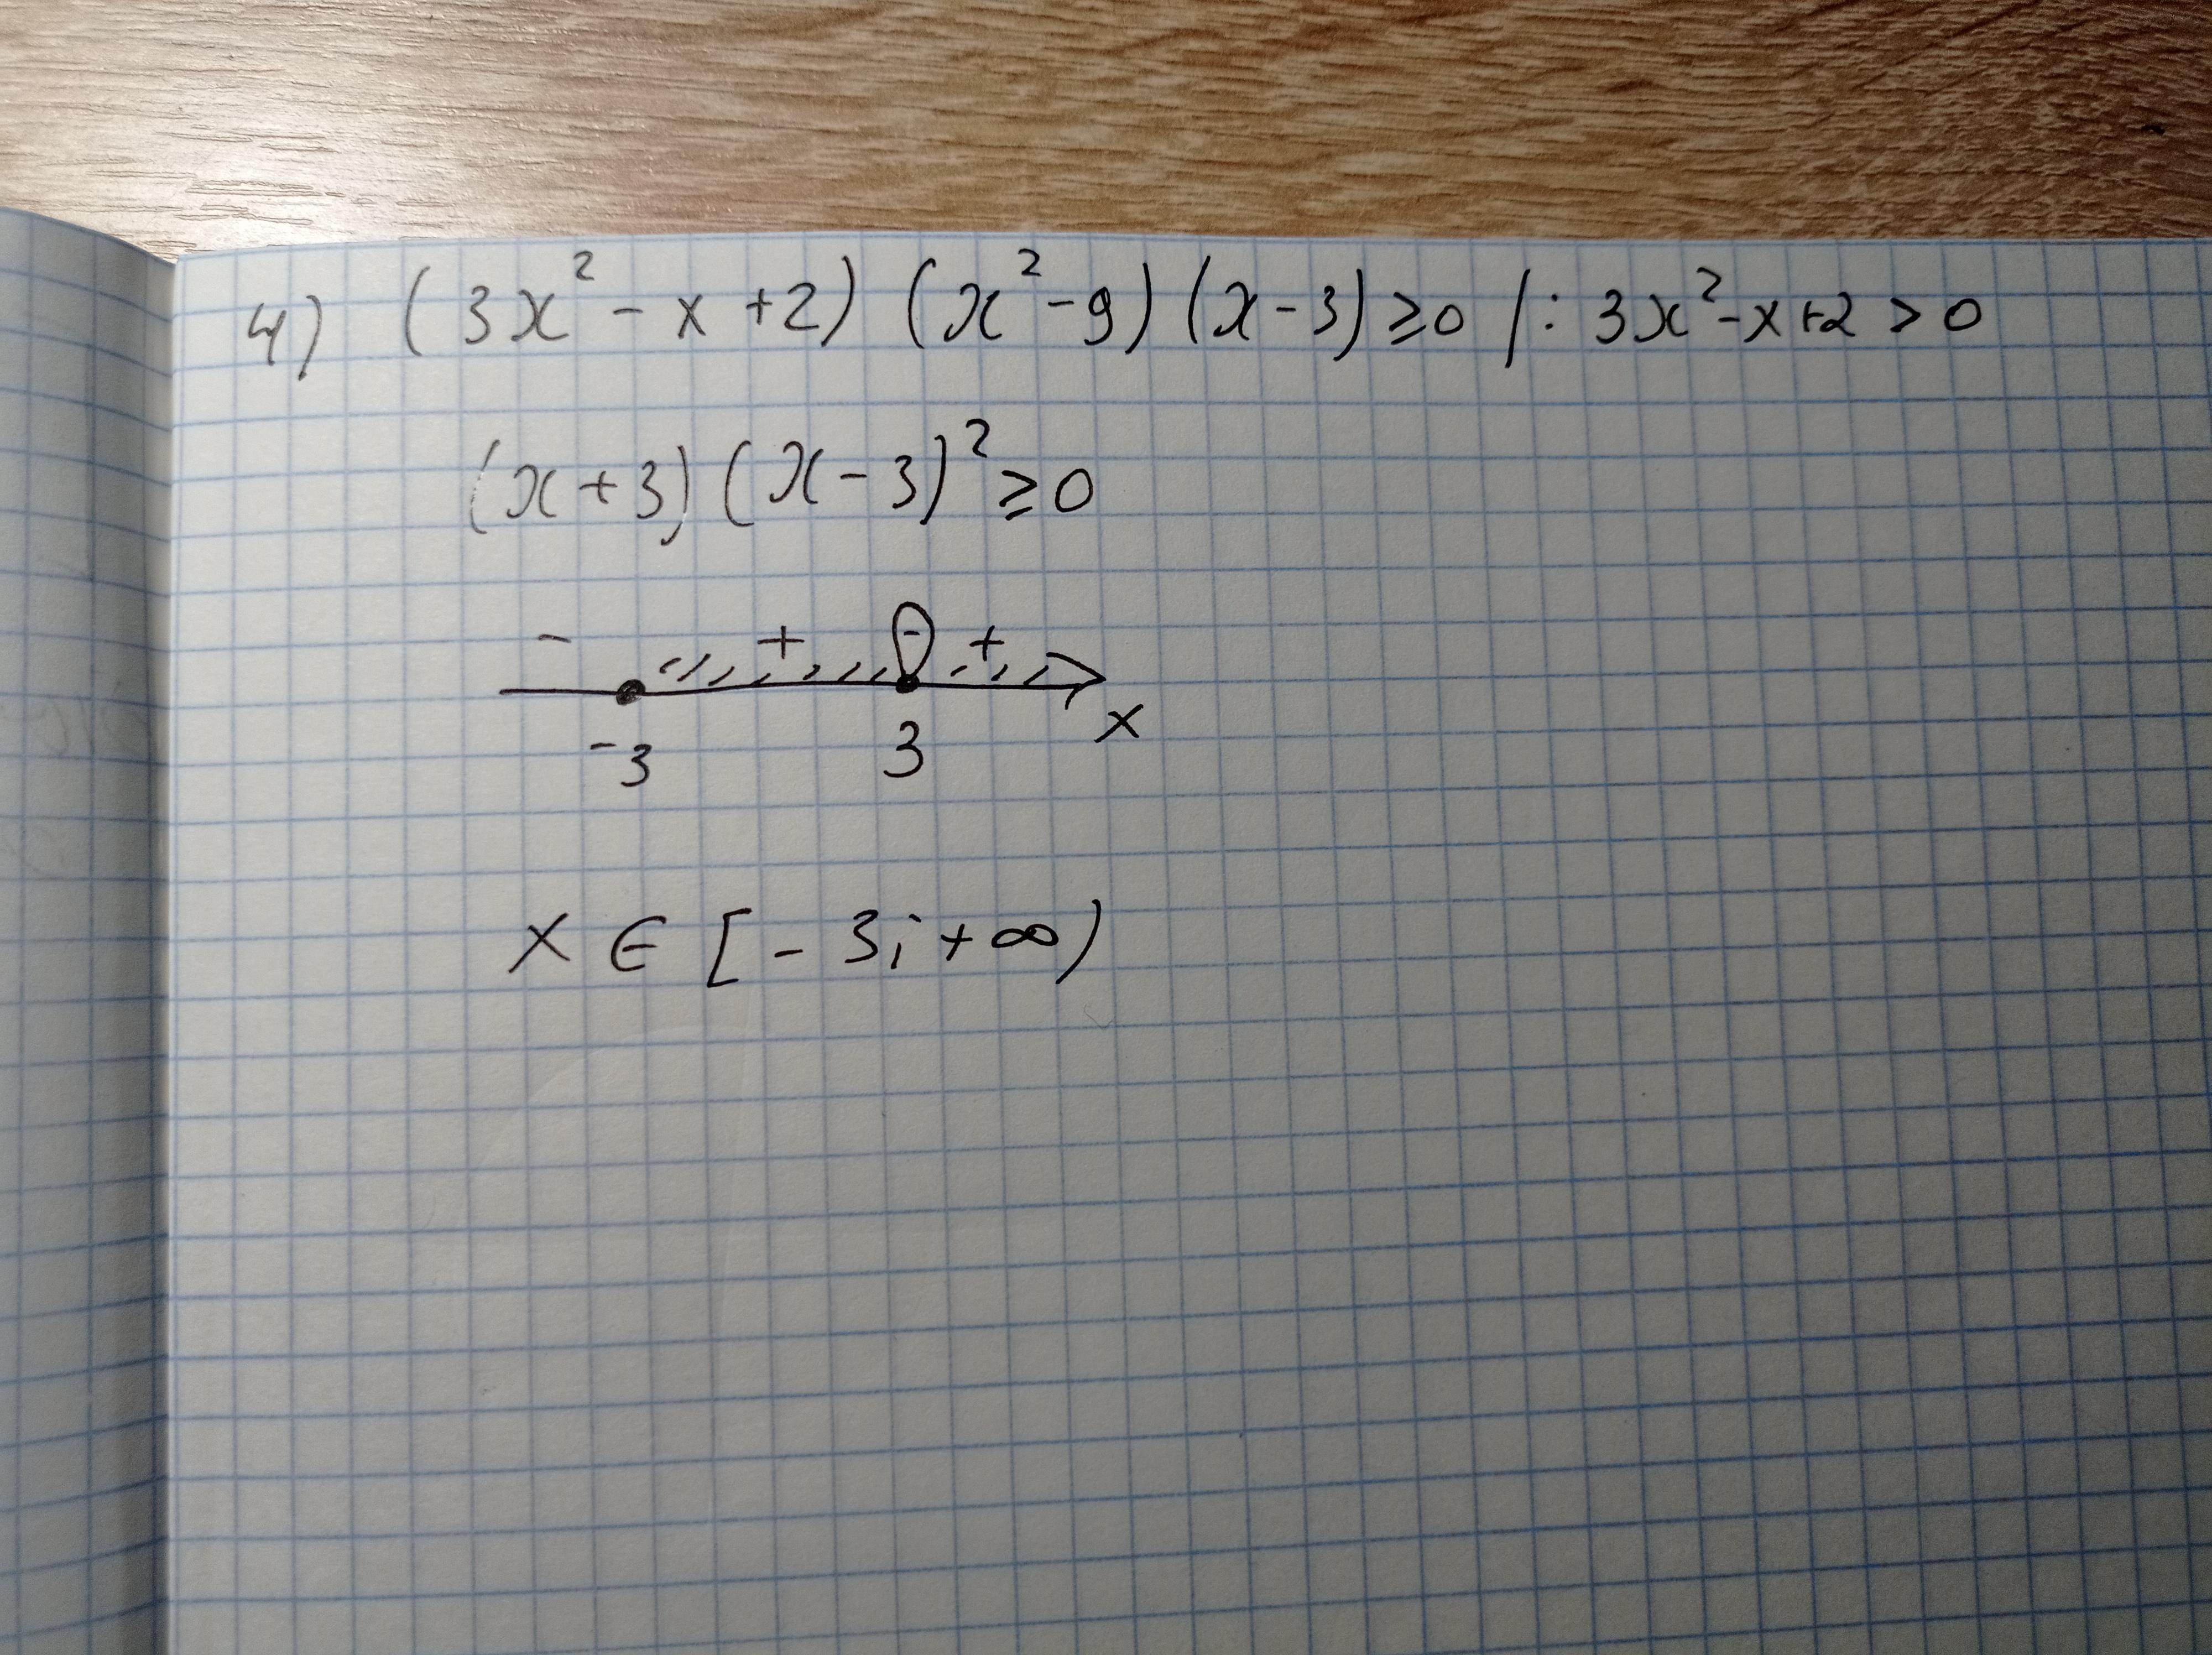 4) (3x² - x + 2) (x² - 9) (x - 3) ≥ 0 /: 3x² - x + 2 > 0
(x + 3) (x - 3)² ≥ 0
- + - +
-3 3 x
x ∈ [-3; +∞)